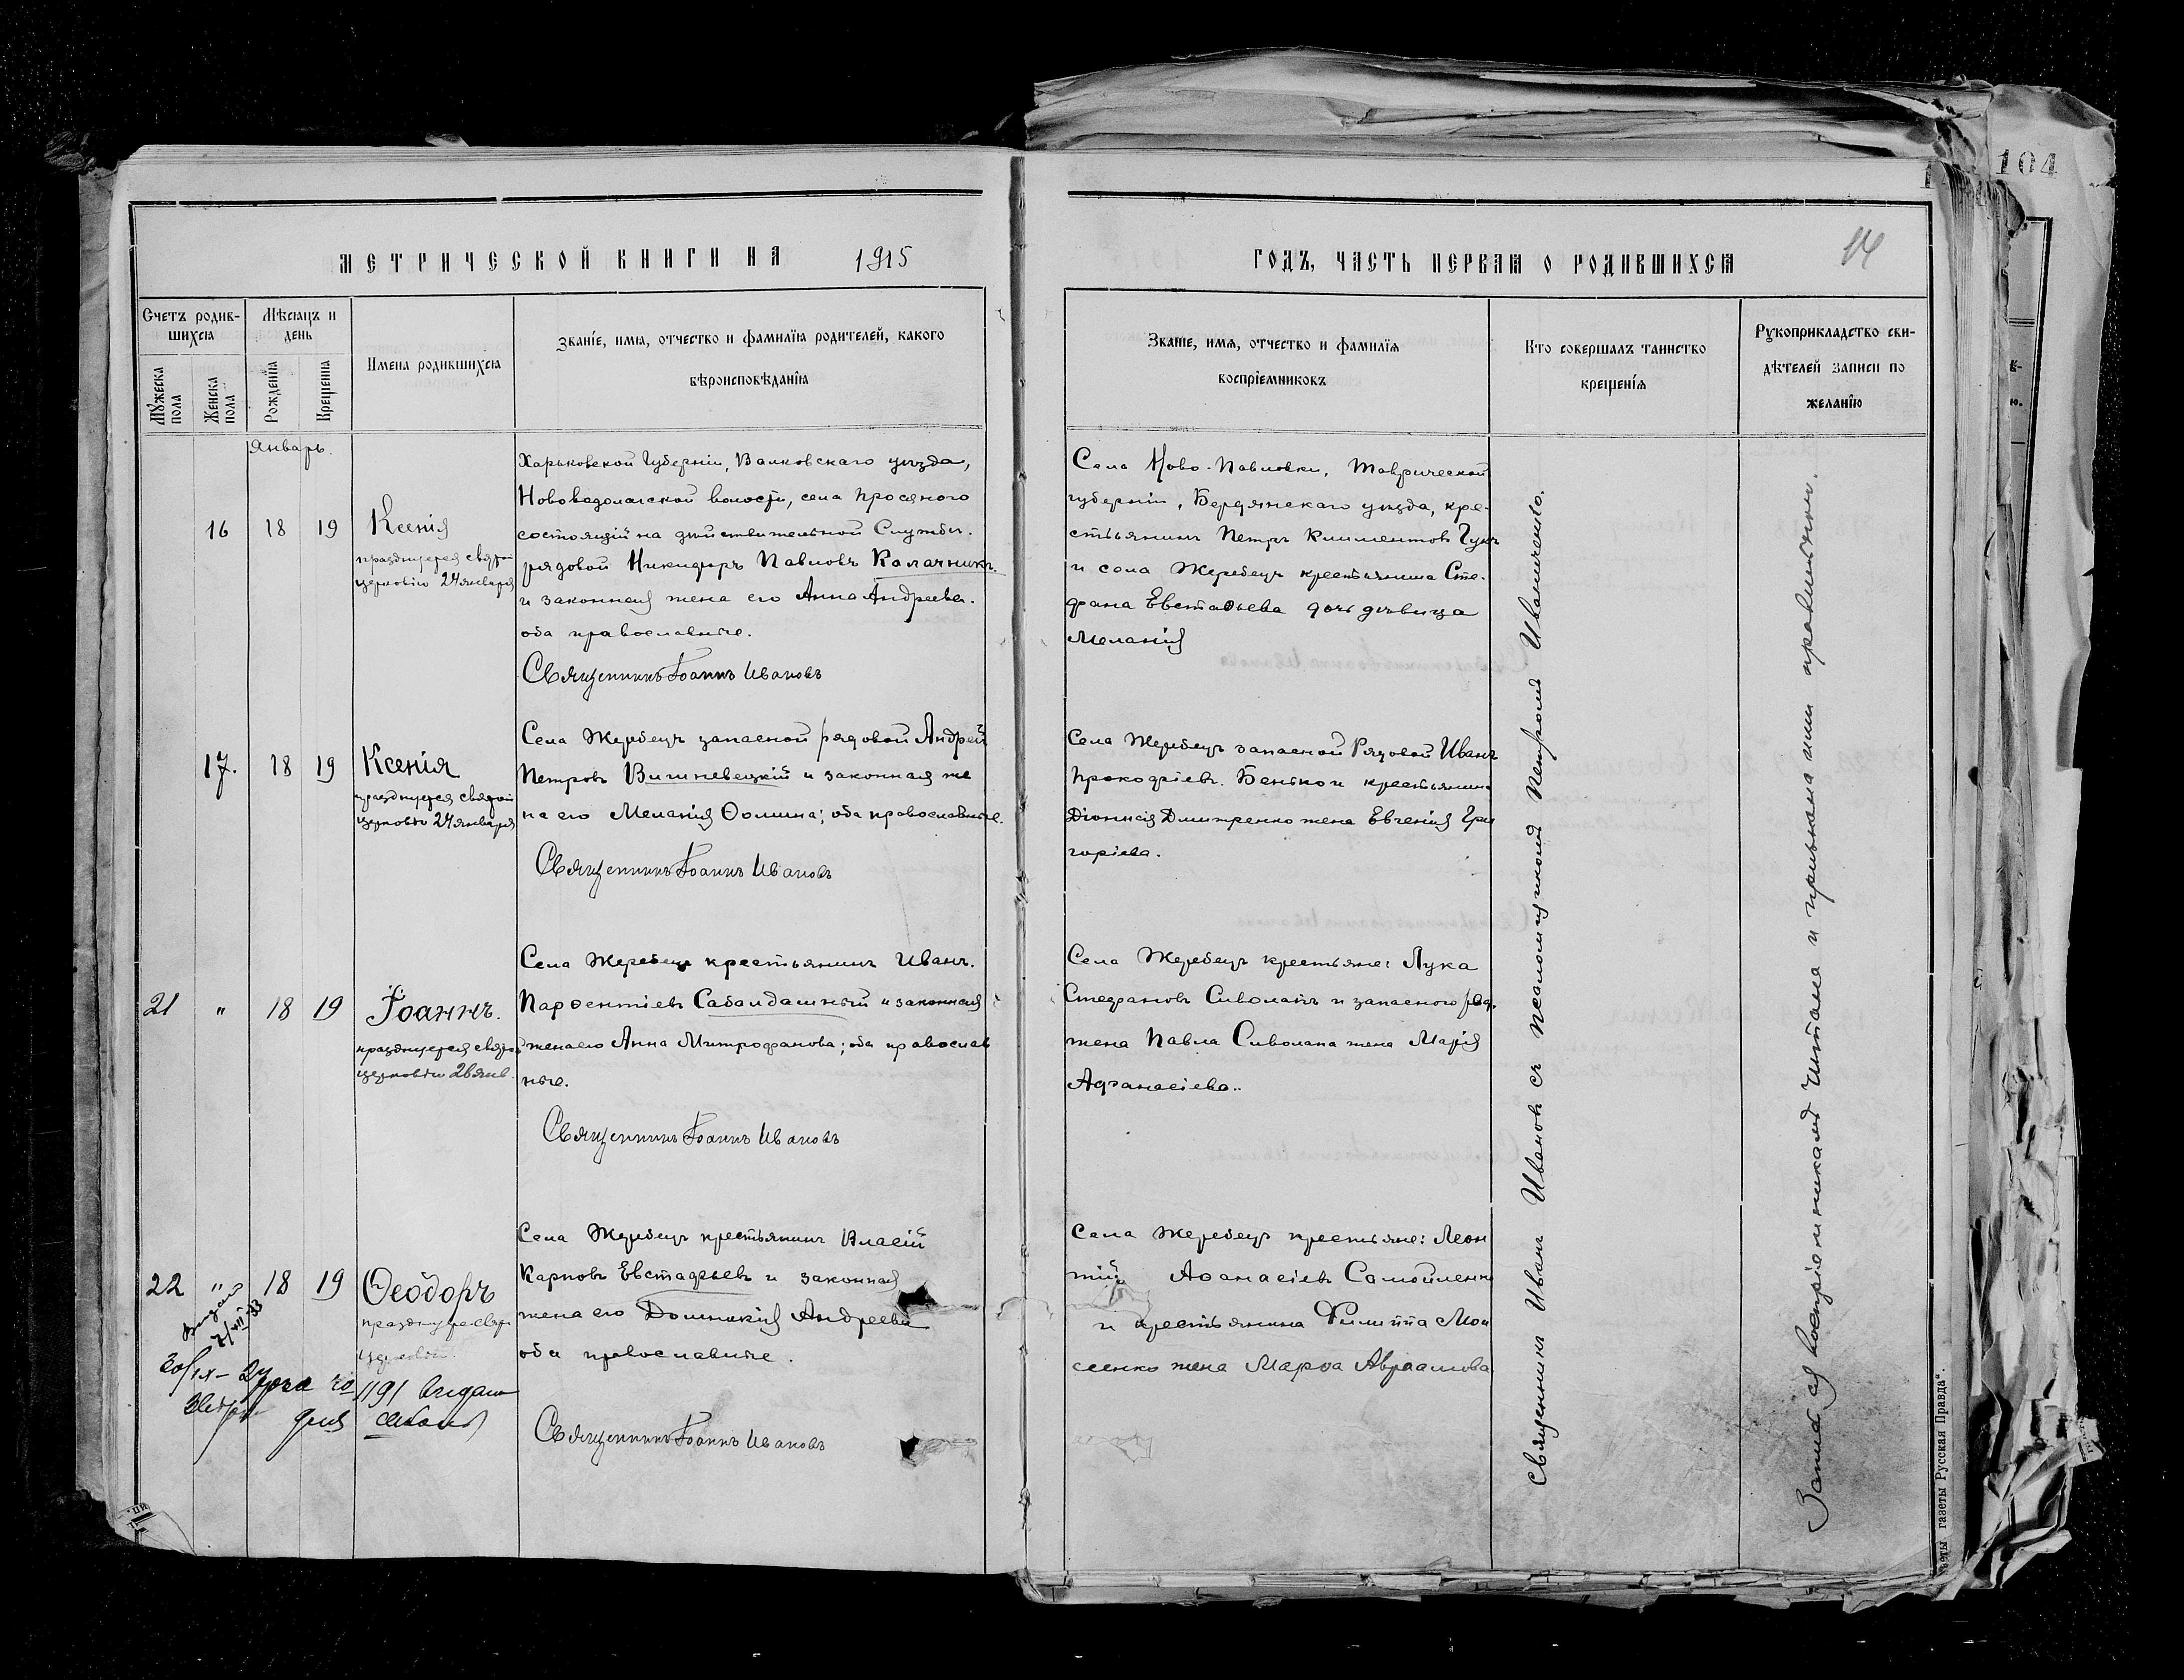 104
МЕТРИЧЕСКОЙ КНИГИ НА 1915
Счетъ родив-
шихся
Мѣсяцъ и
день
Мужеска
пола
Женска
пола
Рожденія
Крещенія
Имена родившихся
Званіе, имя, отчество и фамилія родителей, какого
вѣроисповѣданія
Январь.
16 18 19 Ксенія
празднуется святой
церковію 24 января
Харьковской Губерніи, Валковскаго уѣзда,
Нововодолажской волости, села Просяного
состоящій на дѣйствительной Службѣ.
рядовой Никифоръ Павловъ Калачникъ.
и законная жена его Анна Андреева.
оба православные.
Священникъ Іоаннъ Ивановъ
17. 18 19 Ксенія
празднуется святой
церковію 24 января
Села Жеребецъ запасной рядовой Андрей
Петровъ Вишневецкій и законная же
на его Меланія Ѳомина; оба православные.
Священникъ Іоаннъ Ивановъ
21 " 18 19 Іоаннъ.
празднуется святой
церковію 26 янв.
Села Жеребецъ крестьянинъ Иванъ.
Парѳентіевъ Сабалдашный и законная
жена его Анна Митрофанова; оба православ
ные.
Священникъ Іоаннъ Ивановъ
22 " 18 19 Ѳеодоръ
празднуется свят
церковію
Села Жеребецъ крестьянинъ Власій
Карповъ Евстафьевъ и законная
жена его Домникія Андреева
оба православные.
Священникъ Іоаннъ Ивановъ
7/VII-33
20/IX-
1191
ГОДЪ, ЧАСТЬ ПЕРВАЯ О РОДИВШИХСЯ
14
Званіе, имя, отчество и фамилія
воспріемниковъ
Кто совершалъ таинство
крещенія
Рукоприкладство сви-
дѣтелей записи по
желанію
Села Ново-Павловки, Таврической
губерніи, Бердянскаго уѣзда, кре-
стьянинъ Петръ Климентовъ
и села Жеребецъ крестьянина Сте-
фана Евстафьева дочь дѣвица
Меланія
Села Жеребецъ запасной Рядовой Иванъ
Прокофіевъ. Бенько и крестьянина
Діонисія Дмитренко жена Евгенія Гри
горіева.
Села Жеребецъ крестьяне: Лука
Стефановъ Сиволапъ и запасного ряд.
жена Павла Сиволапа жена Марія
Афанасіева..
Села Жеребецъ крестьяне: Леон
тій Аѳанасіевъ Самойленко
и крестьянина Филиппа Мои
сеенко жена Марѳа Авраамова
Священникъ Иванъ Ивановъ съ псаломщикомъ Петромъ Иваниченко.
Запись сія воспріемникамъ читана и признана ими правильною.
газеты Русская Правда".